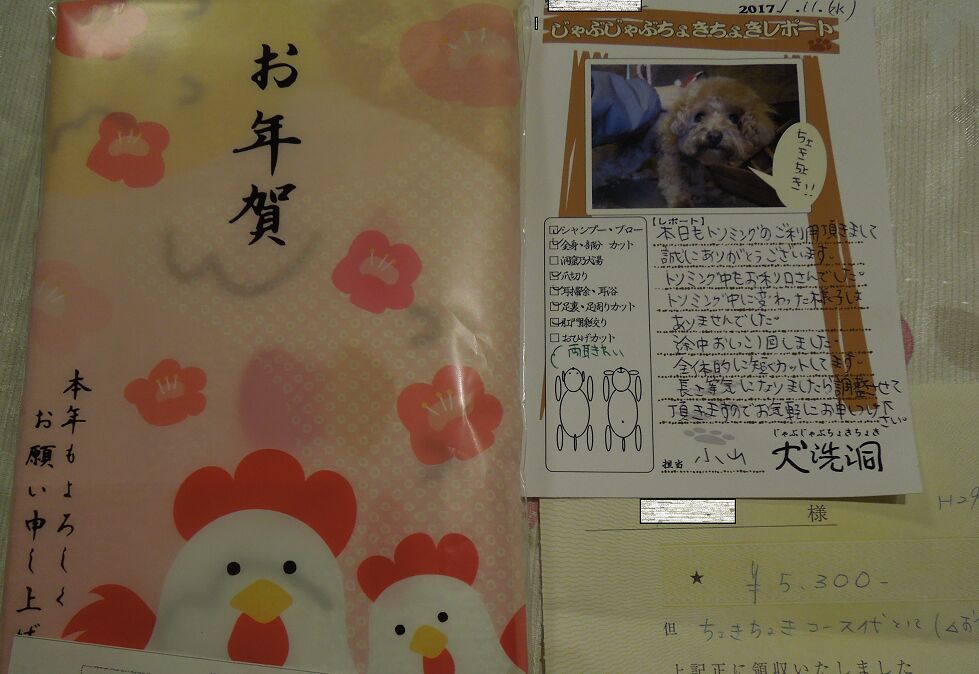 お年賀
本年もよろしく
お願い申し上げ
2017.1.11.(水)
じゃぶじゃぶちょきちょきレポート
ちょきちょき!!
シャンプー・ブロー
全身・部分 カット
洞窟乃犬湯
爪切り
耳掃除・耳浴
足裏・足周りカット
肛門腺絞り
おひげカット
両耳きれい
【レポート】
本日もトリミングのご利用頂きまして
誠にありがとうございます。
トリミング中もお利口さんでした。
トリミング中に変わった様子は
ありませんでした。
途中おしっこ1回しました。
全体的に短くカットしてます。
長さ等気になりましたら調整させて
頂きますのでお気軽にお申しつけ下さい。
担当 小山
じゃぶじゃぶちょきちょき
犬洗洞
様
H29
★ ¥5,300-
但 ちょきちょきコース代として(
上記正に領収いたしました